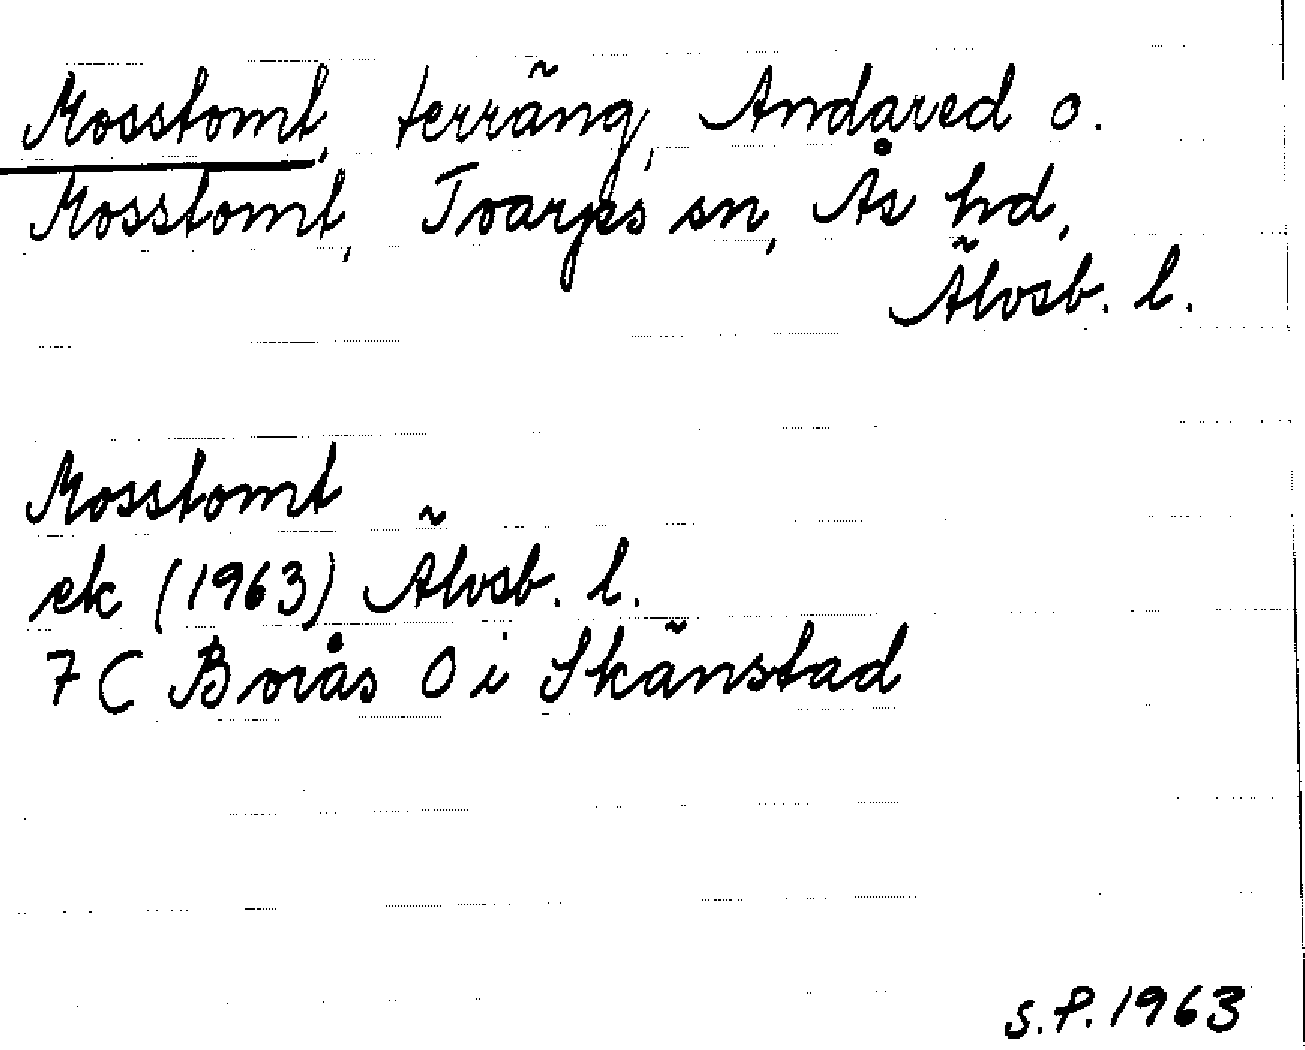 Mosstomt, terräng, Andared o.
Mosstomt, Tvarjes sn, Ås hd,
Älvsb. l.
Mosstomt
ek (1963) Älvsb. l.
7C Borås 0i Skänstad
S.P. 1963